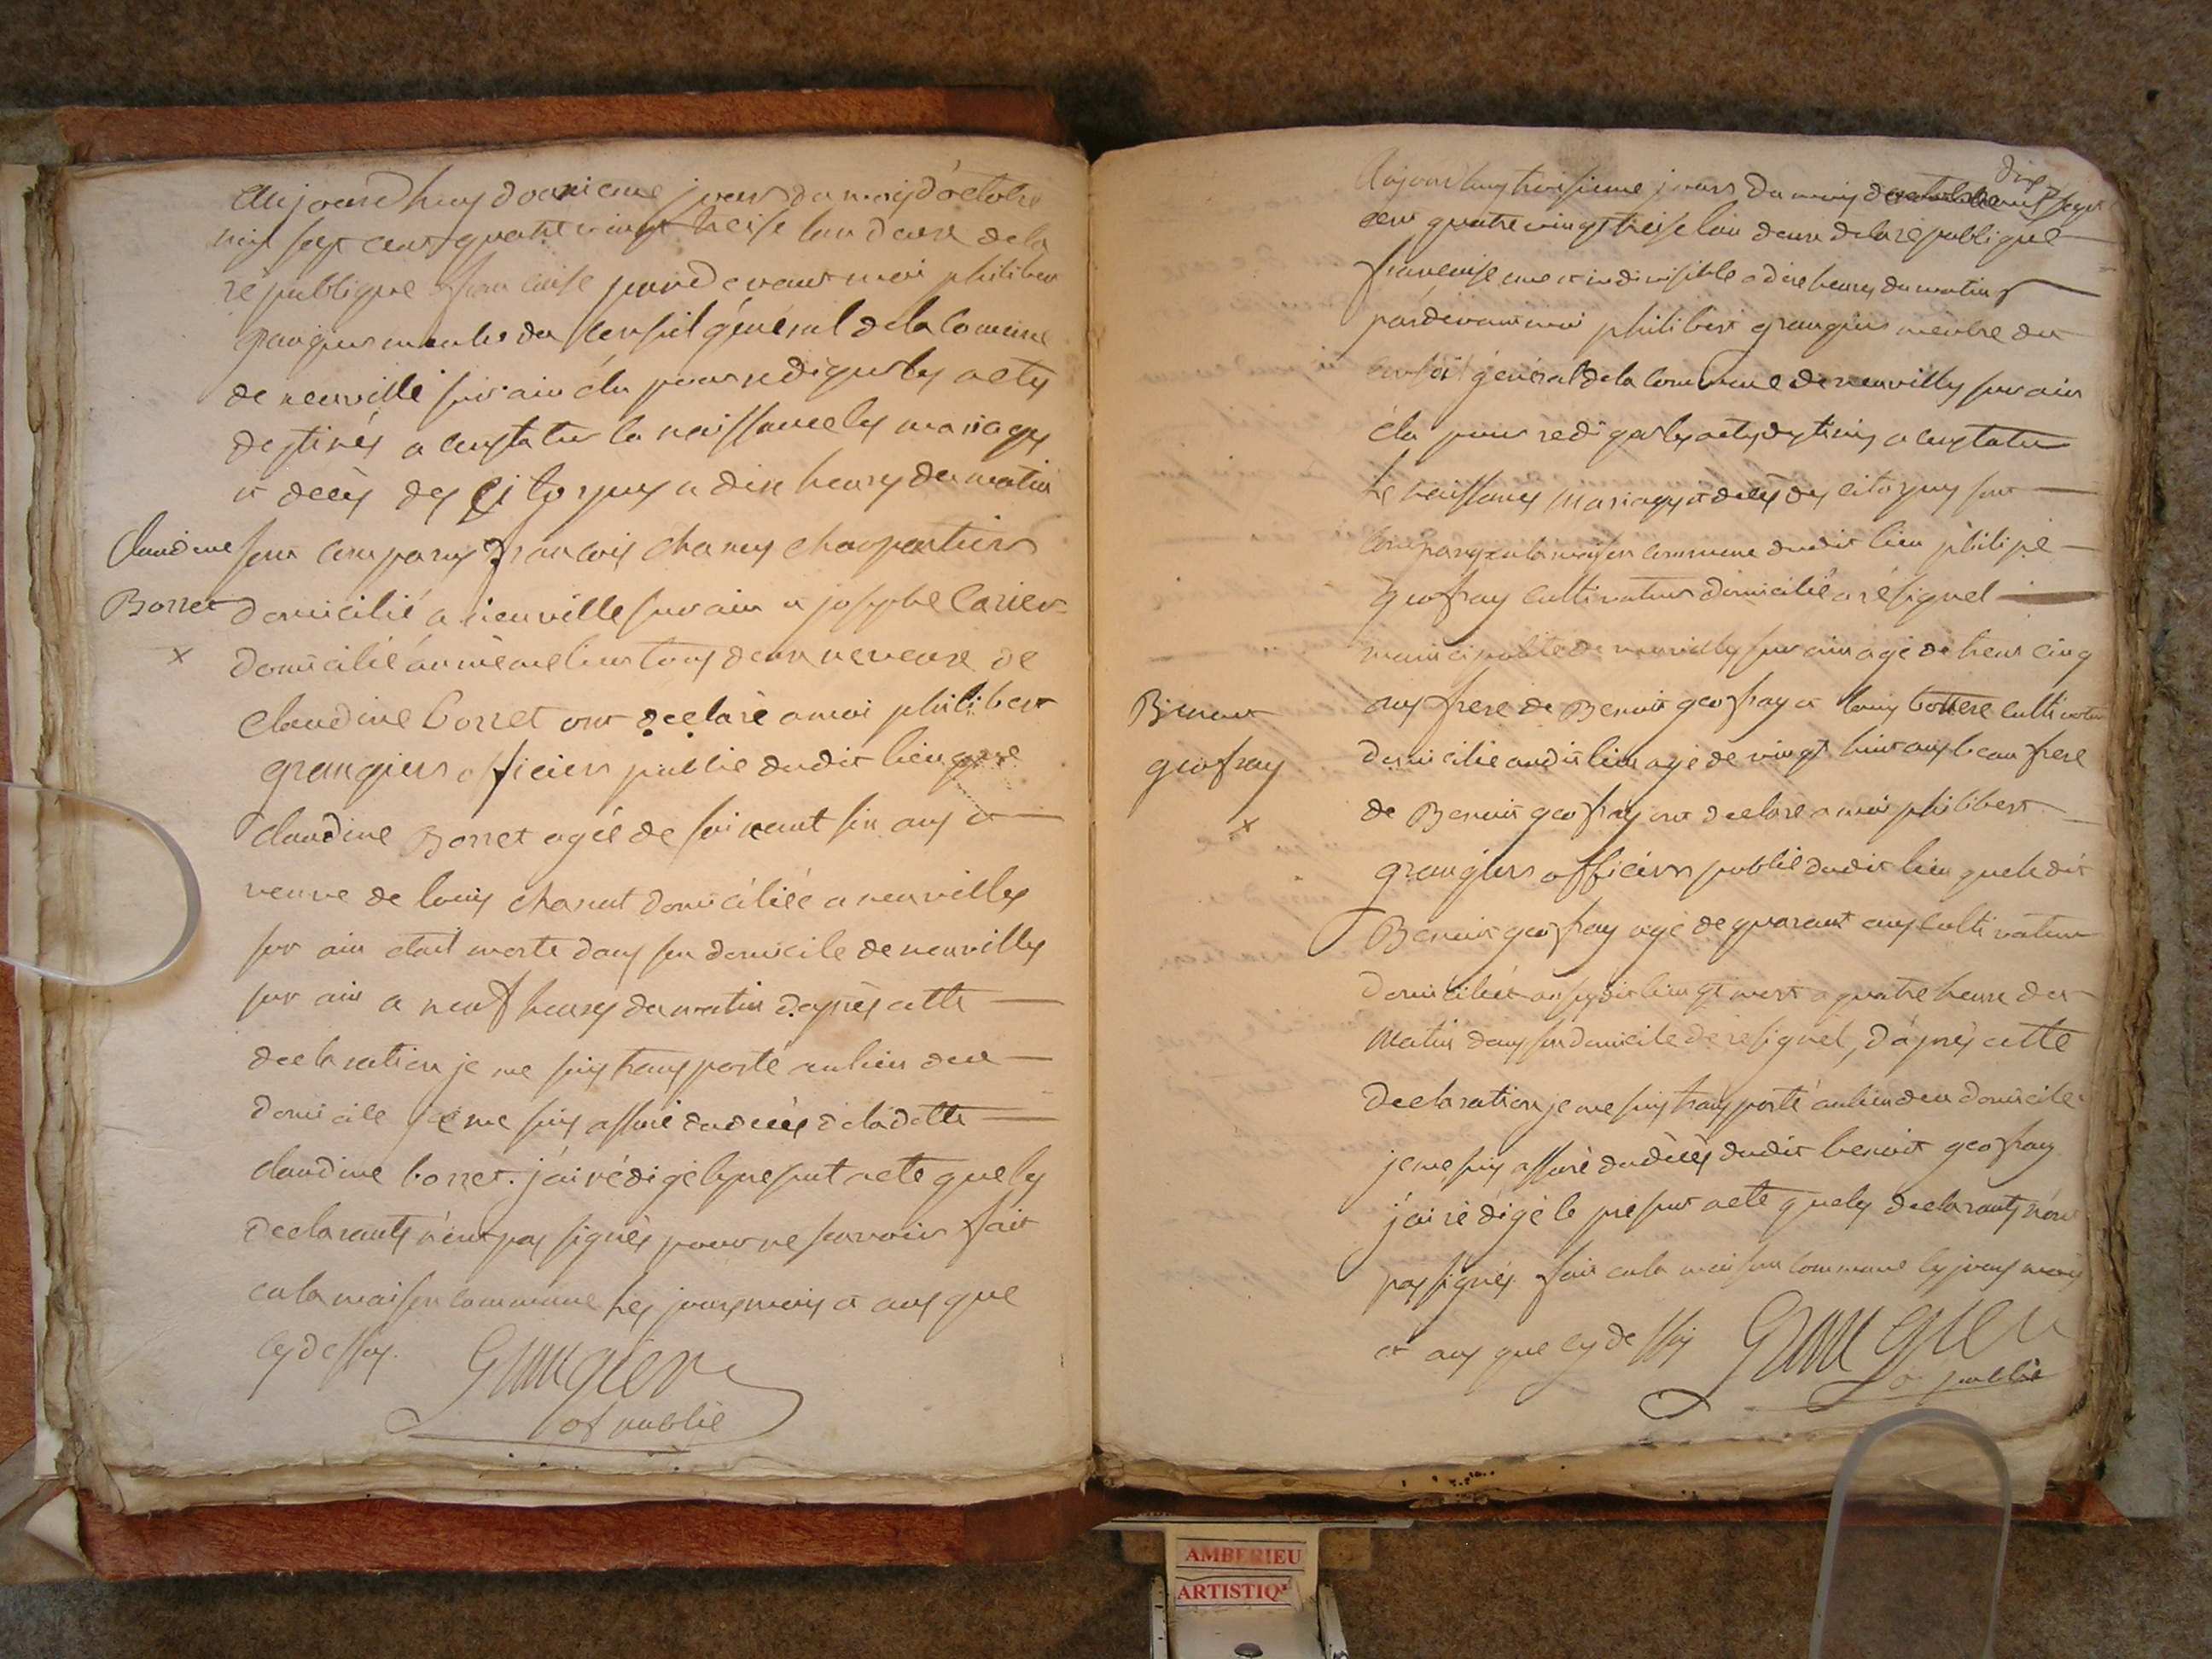 Aujourdhuy douxieme jour du moy d'octobre
mil sept cent quatre vingt treise lan deuxe dela
république francaise pardevant moi philibert
grangier membre du conseil général dela comune
de neuville sur ain élu pour rediger les actes
destinés a constater la naissance les mariages
et décès des citoyens a dix heures du matin
Claudine
Borret
x
sont comparus francois charpentier
domicilié a neuville sur ain et joseph
domicilié au même lieu tous deux neveux de
Claudine borret ont declaré a moi philibert
grangier officier public dudit lieu que
Claudine Borret agée de soixant six ans et
veuve de louis domiciliée a neuville
sur ain etait morte dans son domicile de neuville
sur ain a neuf heures du matin d'aprés cette
declaration je me suis transporté au lieu de ce
domicile je me suis assuré du décés de ladette
claudine borret. j'ai rédigé le present acte que les
declarants n'ont pas signés pour ne savoir fait
en la maison commune les jours mois et ans que
cy dessus.
Grangier
of public
Aujourdhuy troisieme jours du mois mil sept
cent quatre vingt treise lan deuxe dela republique
francaise une et indivisible a dixe heures du matin
pardevant moi philibert grangier membre du
conseil général dela commune de neuville sur ain
élu pour rediger les actes destinés a constater
les naissances mariages et décés des citoyens sont
comparus en la maison commune dudit lieu philipe
geofray cultivateur domicilié a résignel
municipalité de neuville sur ain agé de trent cinq
Benoit
geofray
x
ans frere de Benoit geofray et louis cultivateur
domicilié audit lieu agé de vingt huit ans beau frere
de Benoit geofray ont declaré a moi philibert
grangier officier public dudit lieu que ledit
Benoit geofray agé de quarant ans cultivateur
domicilié lieu est mort a quatre heure du
matin dans son domicile de resignel, d'aprés cette
declaration je me suis transporté au lieu de ce domicile
je me suis assuré du décés dudit benoit geofray
j'ai rédigé le present acte que les declarants n'ont
pas signés fait en la maison commune les jours mois
et ans que cy dessus
Grangier
o public
AMBERIEU
ARTISTIQ